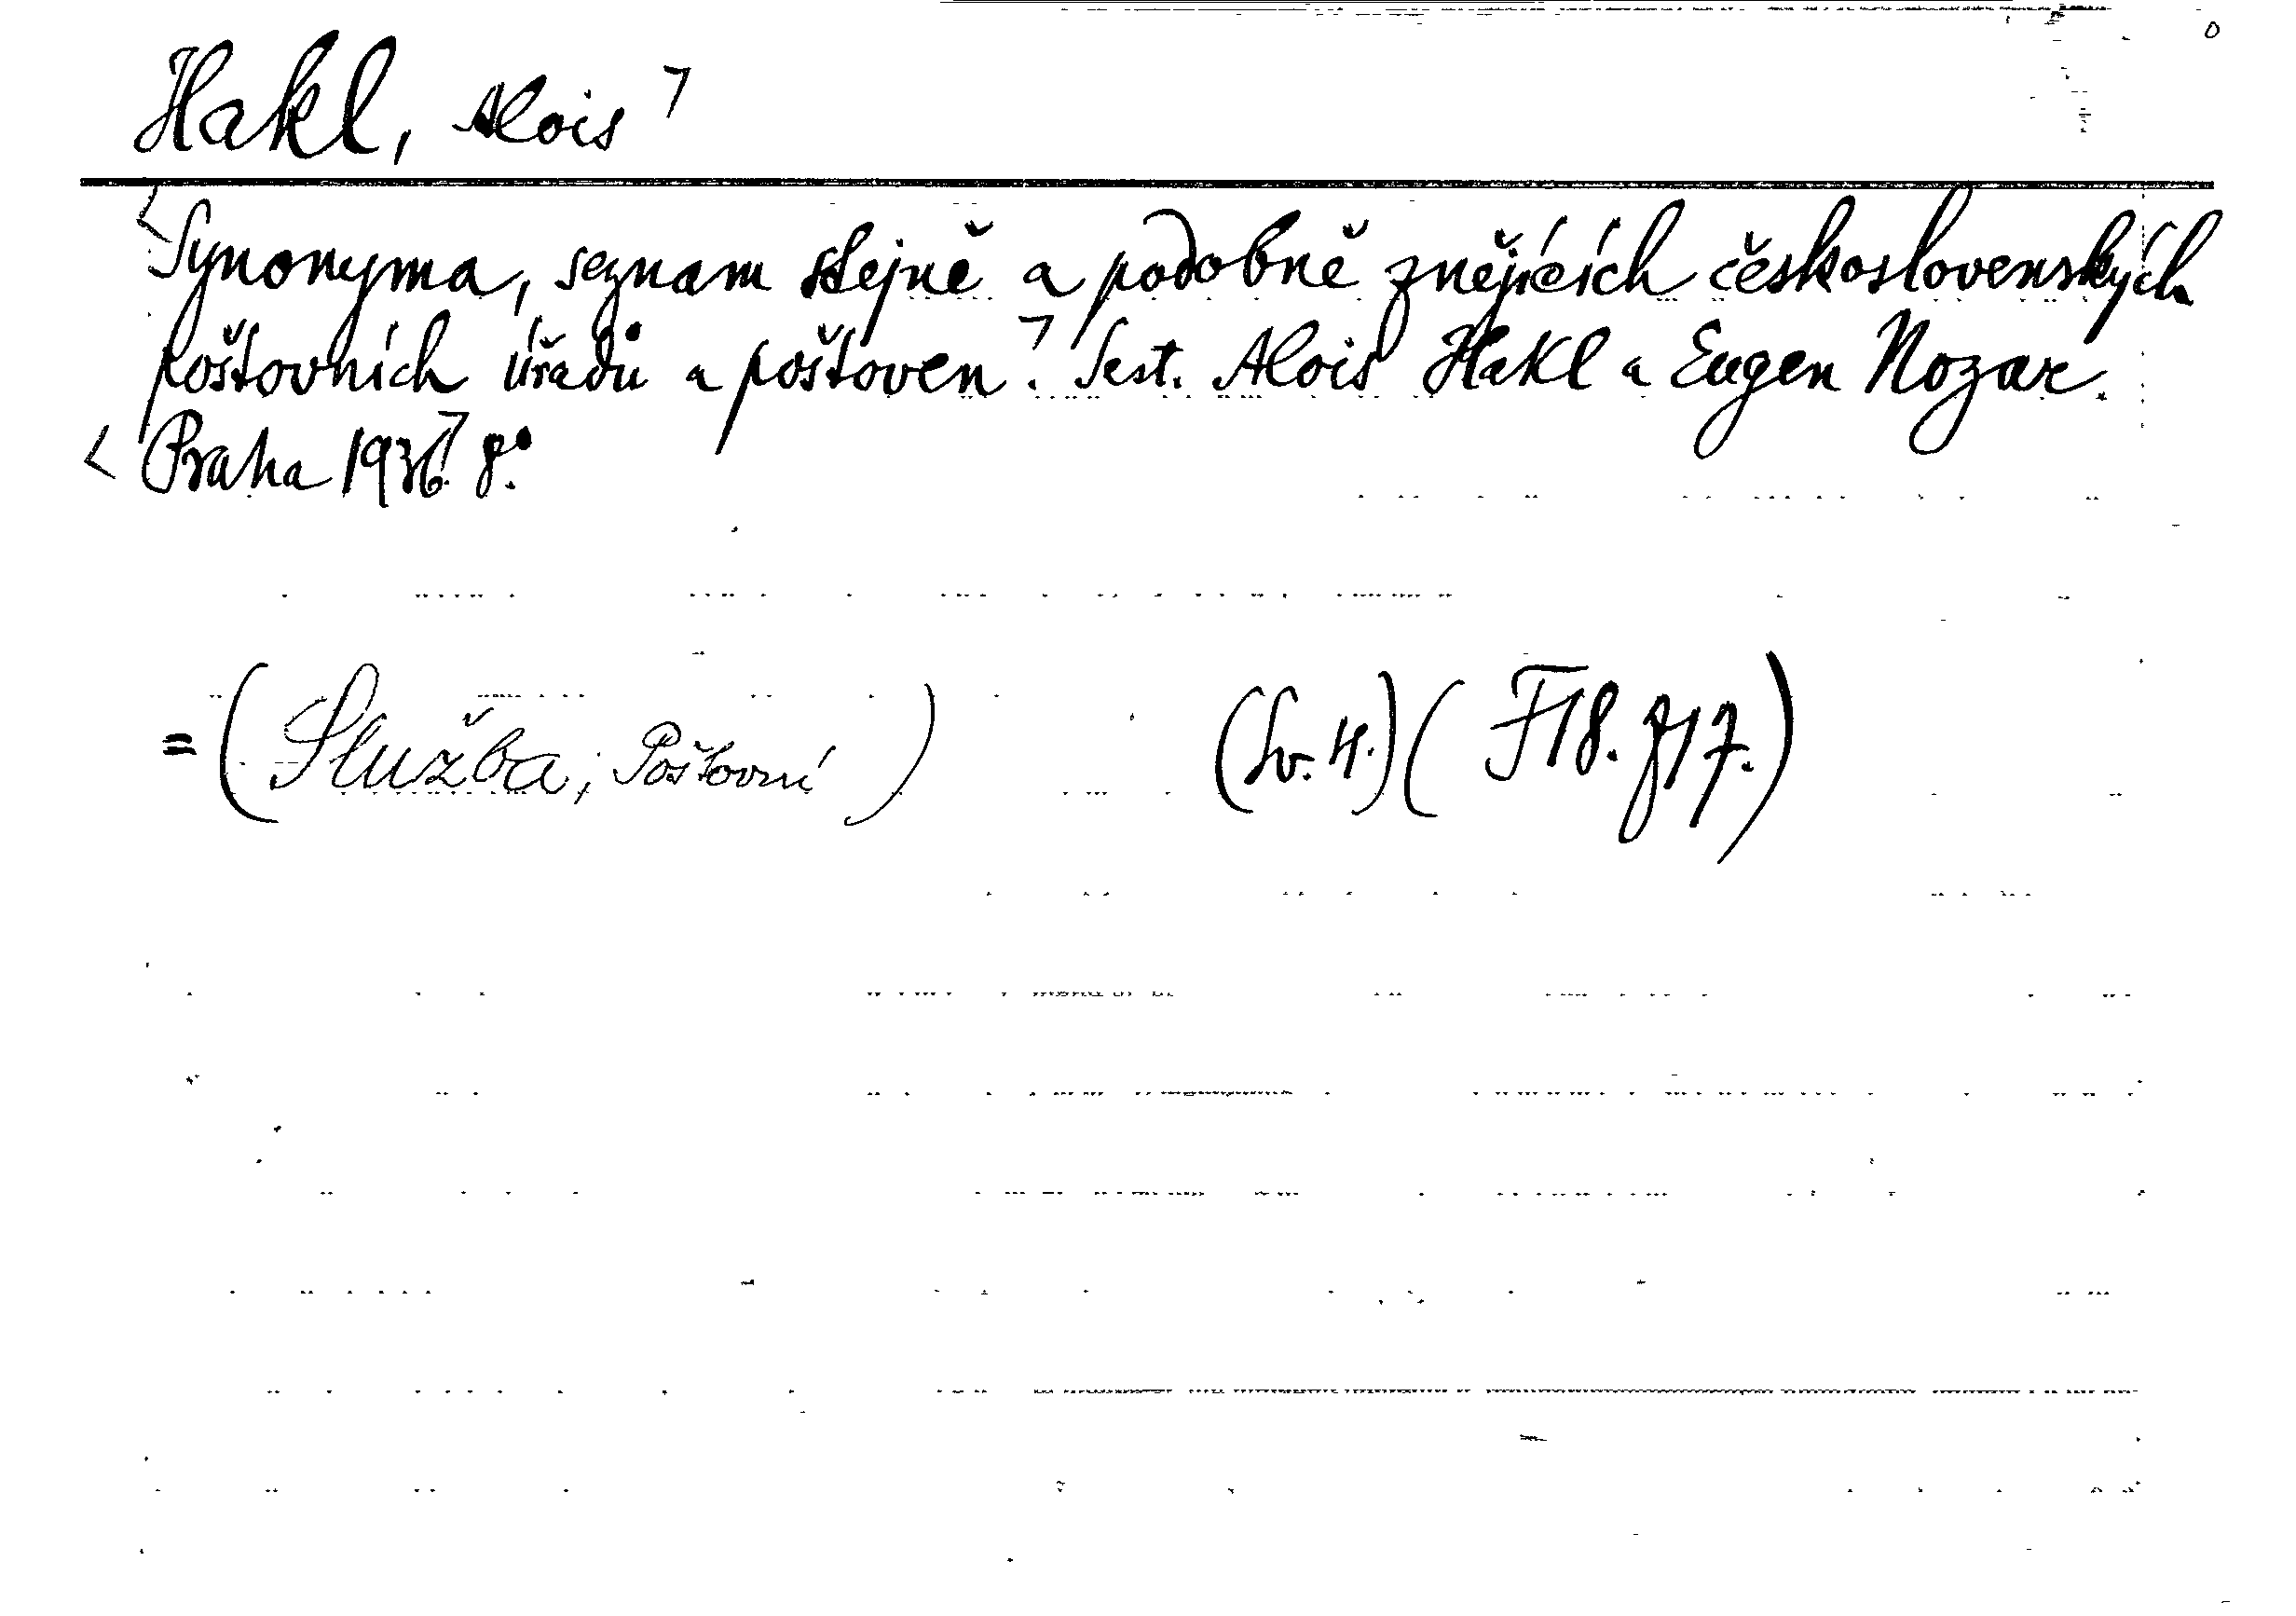 Hakl, Alois
Synonyma, seznam stejně a podobně znějících československých
poštovních úřadů a poštoven. Sest. Alois Hakl a Eugen Nozar.
Praha 1936. 8°.
=(Služba, Poštovní) (Sv. 4.) (F18. g17.)